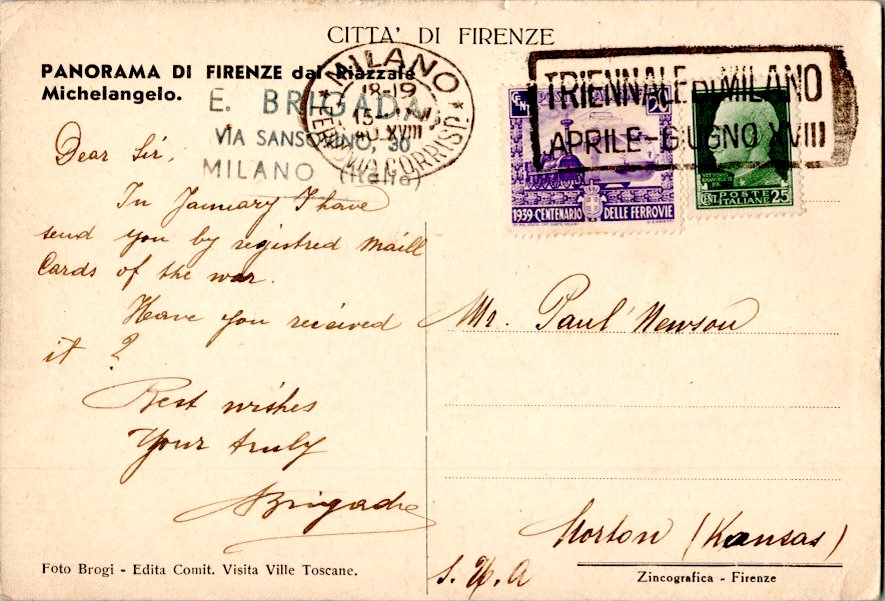 CITTA' DI FIRENZE
PANORAMA DI FIRENZE dal Piazzale
Michelangelo.
E. BRIGADA
VIA SANSOVINO, 30
MILANO (Italia)
MILANO
18-19
15
40 XVIII
TRIENNALE DI MILANO
APRILE-GIUGNO XVIII
CENT.
20
1939 CENTENARIO DELLE FERROVIE
CENT. 25
POSTE
ITALIANE
Dear Sir,
In January I have
send you by registred maill
Cards of the war.
Have you recieved
it ?
Best wishes
Your truly
ABrigada
Mr. Paul Newson
Morton (Kansas)
S. U. A
Foto Brogi - Edita Comit. Visita Ville Toscane.
Zincografica - Firenze